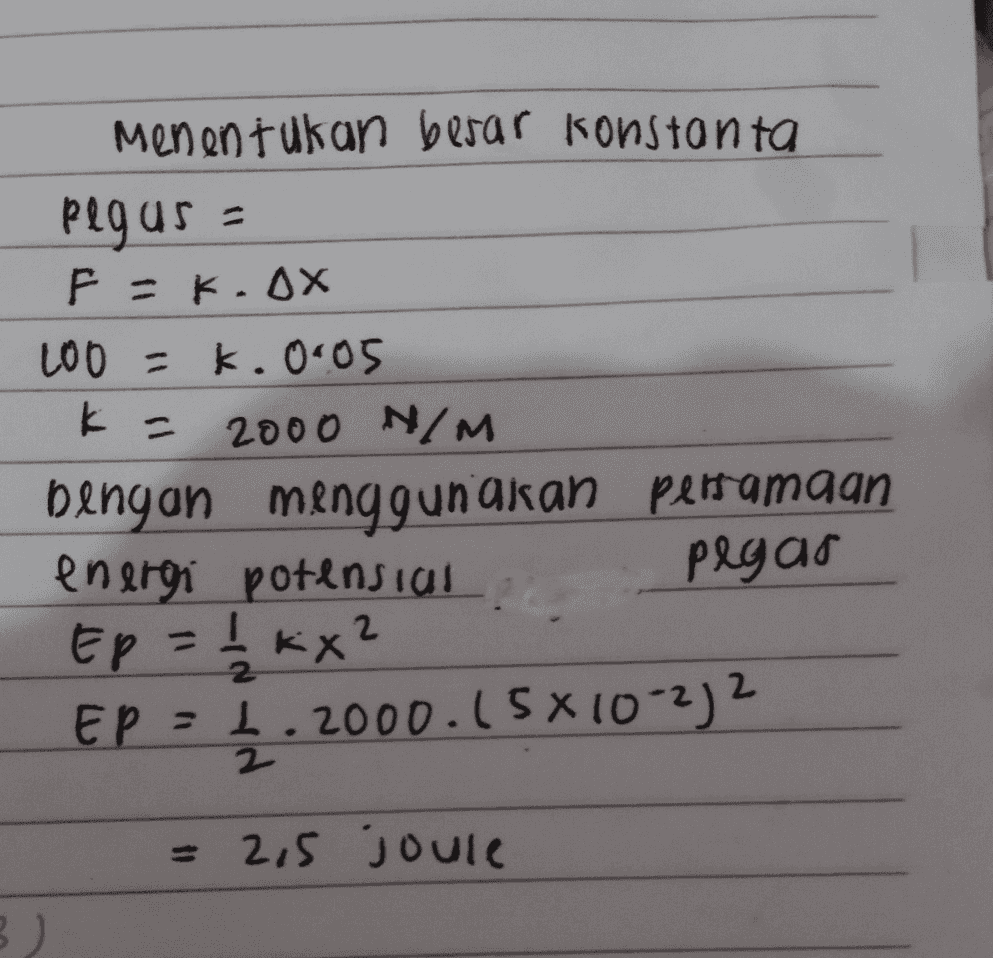 Menentukan besar konstanta
pegas =
F = k . Δx
100 = k . 0,05
k = 2000 N/M
Dengan menggunakan persamaan
energi potensial pegas
Ep = 1/2 kx²
Ep = 1/2 . 2000 . (5 x 10⁻²)²
= 2,5 joule
3)